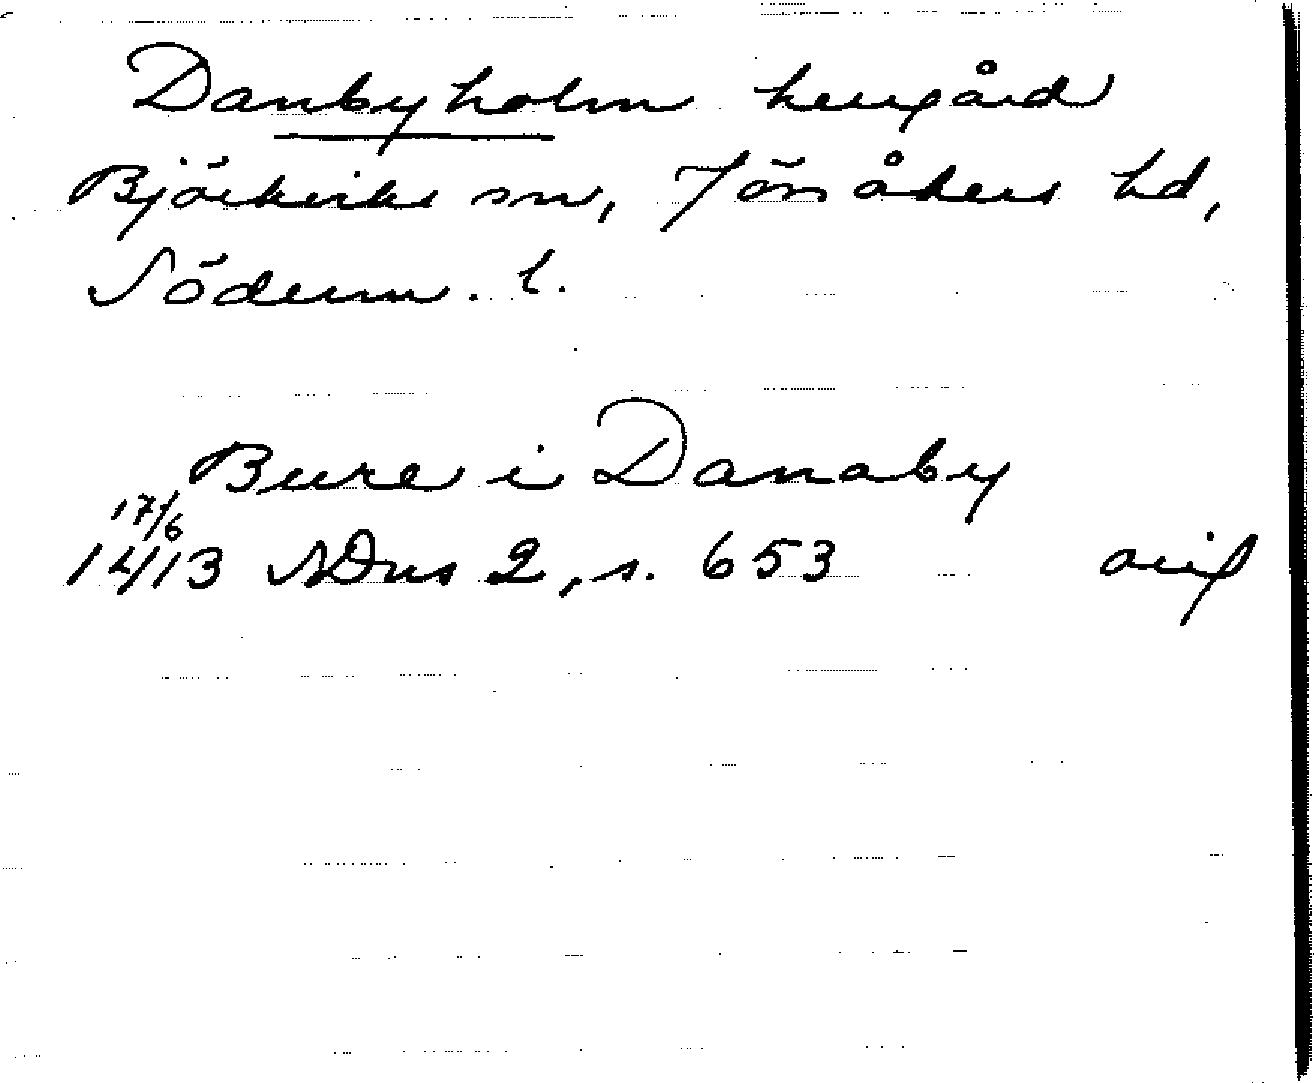 Danbyholm herrgård
Björkviks sn, Jönåkers hd,
Söderm. l.
Bure i Danaby
17/6
1413 SDns 2, s. 653 orig